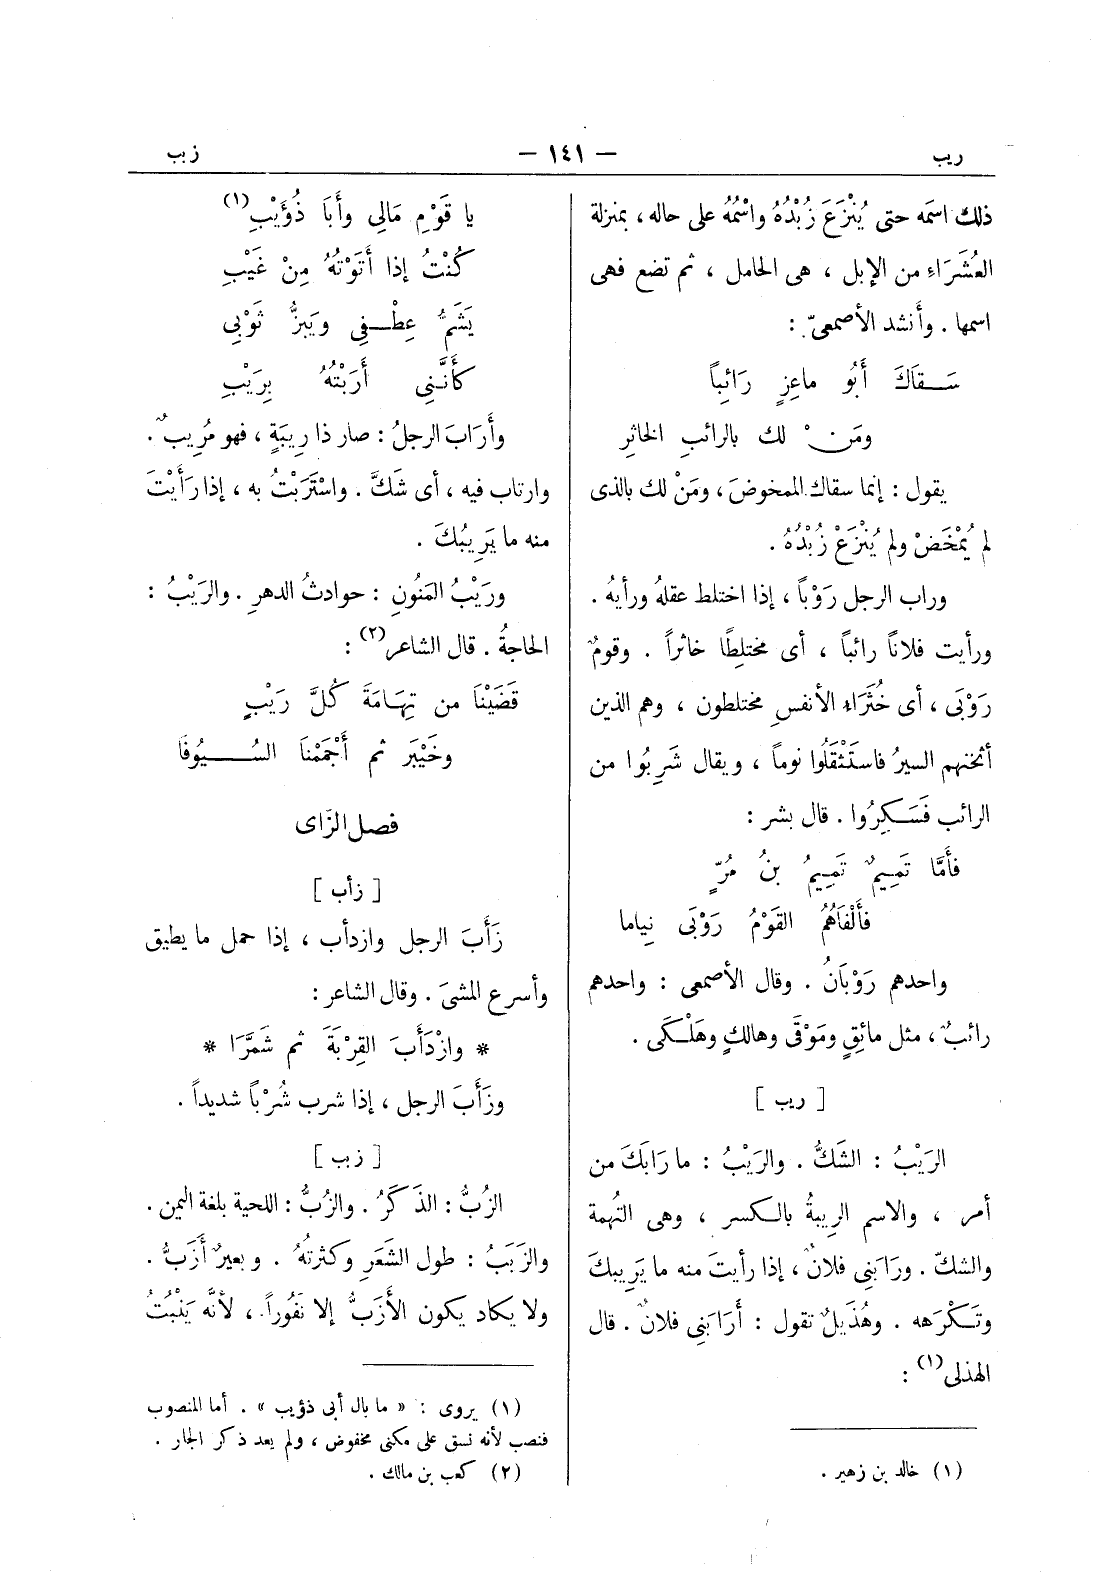 ريب
— ١٤١ —
زبب
ذلك اسمَه حتى يُنْزَعَ زُبْدُهُ واسْمُهُ على حاله، بمنزلة
العُشَرَاءِ من الإبل ، هى الحامل ، ثم تضع فهى
اسمها . وأنشد الأصمعىّ :
سَـقاَكَ أَبُو ماعِزٍ رَائِباً
ومَنْ لك بالرائبِ الخاثِرِ
يقول : إنما سقاك الممخوضَ ، ومَنْ لك بالذى
لم يُمْخَضْ ولم يُنْزَعْ زُبْدُهُ .
وراب الرجل رَوْباً ، إذا اختلط عقلهُ ورأيهُ .
ورأيت فلاناً رائباً ، أى مختلِطًا خاثراً . وقومٌ
رَوْبَى ، أى خُثَرَاء الأنفسِ مختلطون ، وهم الذين
أثخنهم السيرُ فاستَثْقَلُوا نوماً ، ويقال شَرِبُوا من
الرائب فَسَـكِرُوا . قال بشر :
فأَمَّا تَمِيمٌ تَمِيمُ بنُ مُرّ
فأَلْفَاهُمُ القَوْمُ رَوْبَى نِياما
واحدهم رَوْبَانُ . وقال الأصمعى : واحدهم
رائبٌ ، مثل مائقٍ ومَوْقَى وهالكٍ وهَلْـكَى .
[ ريب ]
الرَيْبُ : الشَكُّ . والرَيْبُ : ما رَابَكَ من
أمر ، والاسم الرِيبةُ بالـكسر ، وهى التُهمة
والشكّ . ورَابَنِى فلانٌ ، إذا رأيتَ منه ما يَرِيبكَ
وتَـكْرَهه . وهُذَيلٌ تقول : أَرَابَنِى فلانٌ . قال
الهذلى(١) :
(١) خالد بن زهير .
يا قَوْمِ مَالِى وأَبَا ذُؤَيْبِ(١)
كُنْتُ إذا أَتَوْتُهُ مِنْ غَيْبِ
يَشَمُّ عِطْـفِى ويَبزُّ ثَوْبِى
كأَنَّنِى أَرَبْتُهُ بِرَيْبِ
وأَرَابَ الرجلُ : صار ذا رِيبَةٍ ، فهو مُرِيبٌ .
وارتاب فيه ، أى شَكَّ . واسْتَرَبْتُ به ، إذا رَأَيْتَ
منه ما يَرِيبُكَ .
ورَيْبُ المَنُونِ : حوادثُ الدهرِ . والرَيْبُ :
الحاجةُ . قال الشاعر(٢) :
قَضَيْنَا من تِهَامَةَ كُلَّ رَيْبٍ
وخَيْبَر ثم أَجْمَمْنَا السُـيُوفَا
فصل الزَّاى
[ زأب ]
زَأَبَ الرجل وازدأب ، إذا حمل ما يطيق
وأسرع المشىَ . وقال الشاعر :
* وازْدَأَبَ القِرْبَةَ ثم شَمَّرَا *
وزَأَبَ الرجل ، إذا شرب شُرْباً شديداً .
[ زبب ]
الزُبُّ : الذَكَرُ . والزُبُّ : اللحية بلغة اليمن .
والزَبَبُ : طول الشَعَرِ وكثرتُهُ . وبعيرٌ أَزَبُّ .
ولا يكاد يكون الأَزَبُّ إلا نَفُوراً ، لأنَّه يَنْبُتُ
(١) يروى : « ما بال أبى ذؤيب » . أما المنصوب
فنصب لأنه نسق على مكنى مخفوض ، ولم يعد ذكر الجار .
(٢) كعب بن مالك .